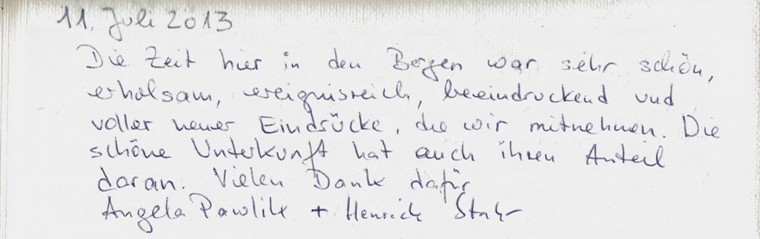 11. Juli 2013
Die Zeit hier in den Bergen war sehr schön,
erholsam, ereignisreich, beeindruckend und
voller neuer Eindrücke, die wir mitnehmen. Die
schöne Unterkunft hat auch ihren Anteil
daran. Vielen Dank dafür
Angela Pawlik + Henrick